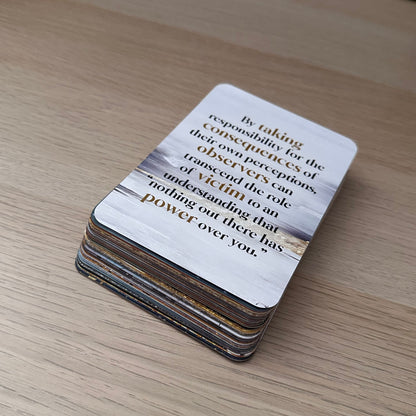 By taking
responsibility for the
consequences of
their own perceptions,
observers can
transcend the role
of victim to an
understanding that
"nothing out there has
power over you."